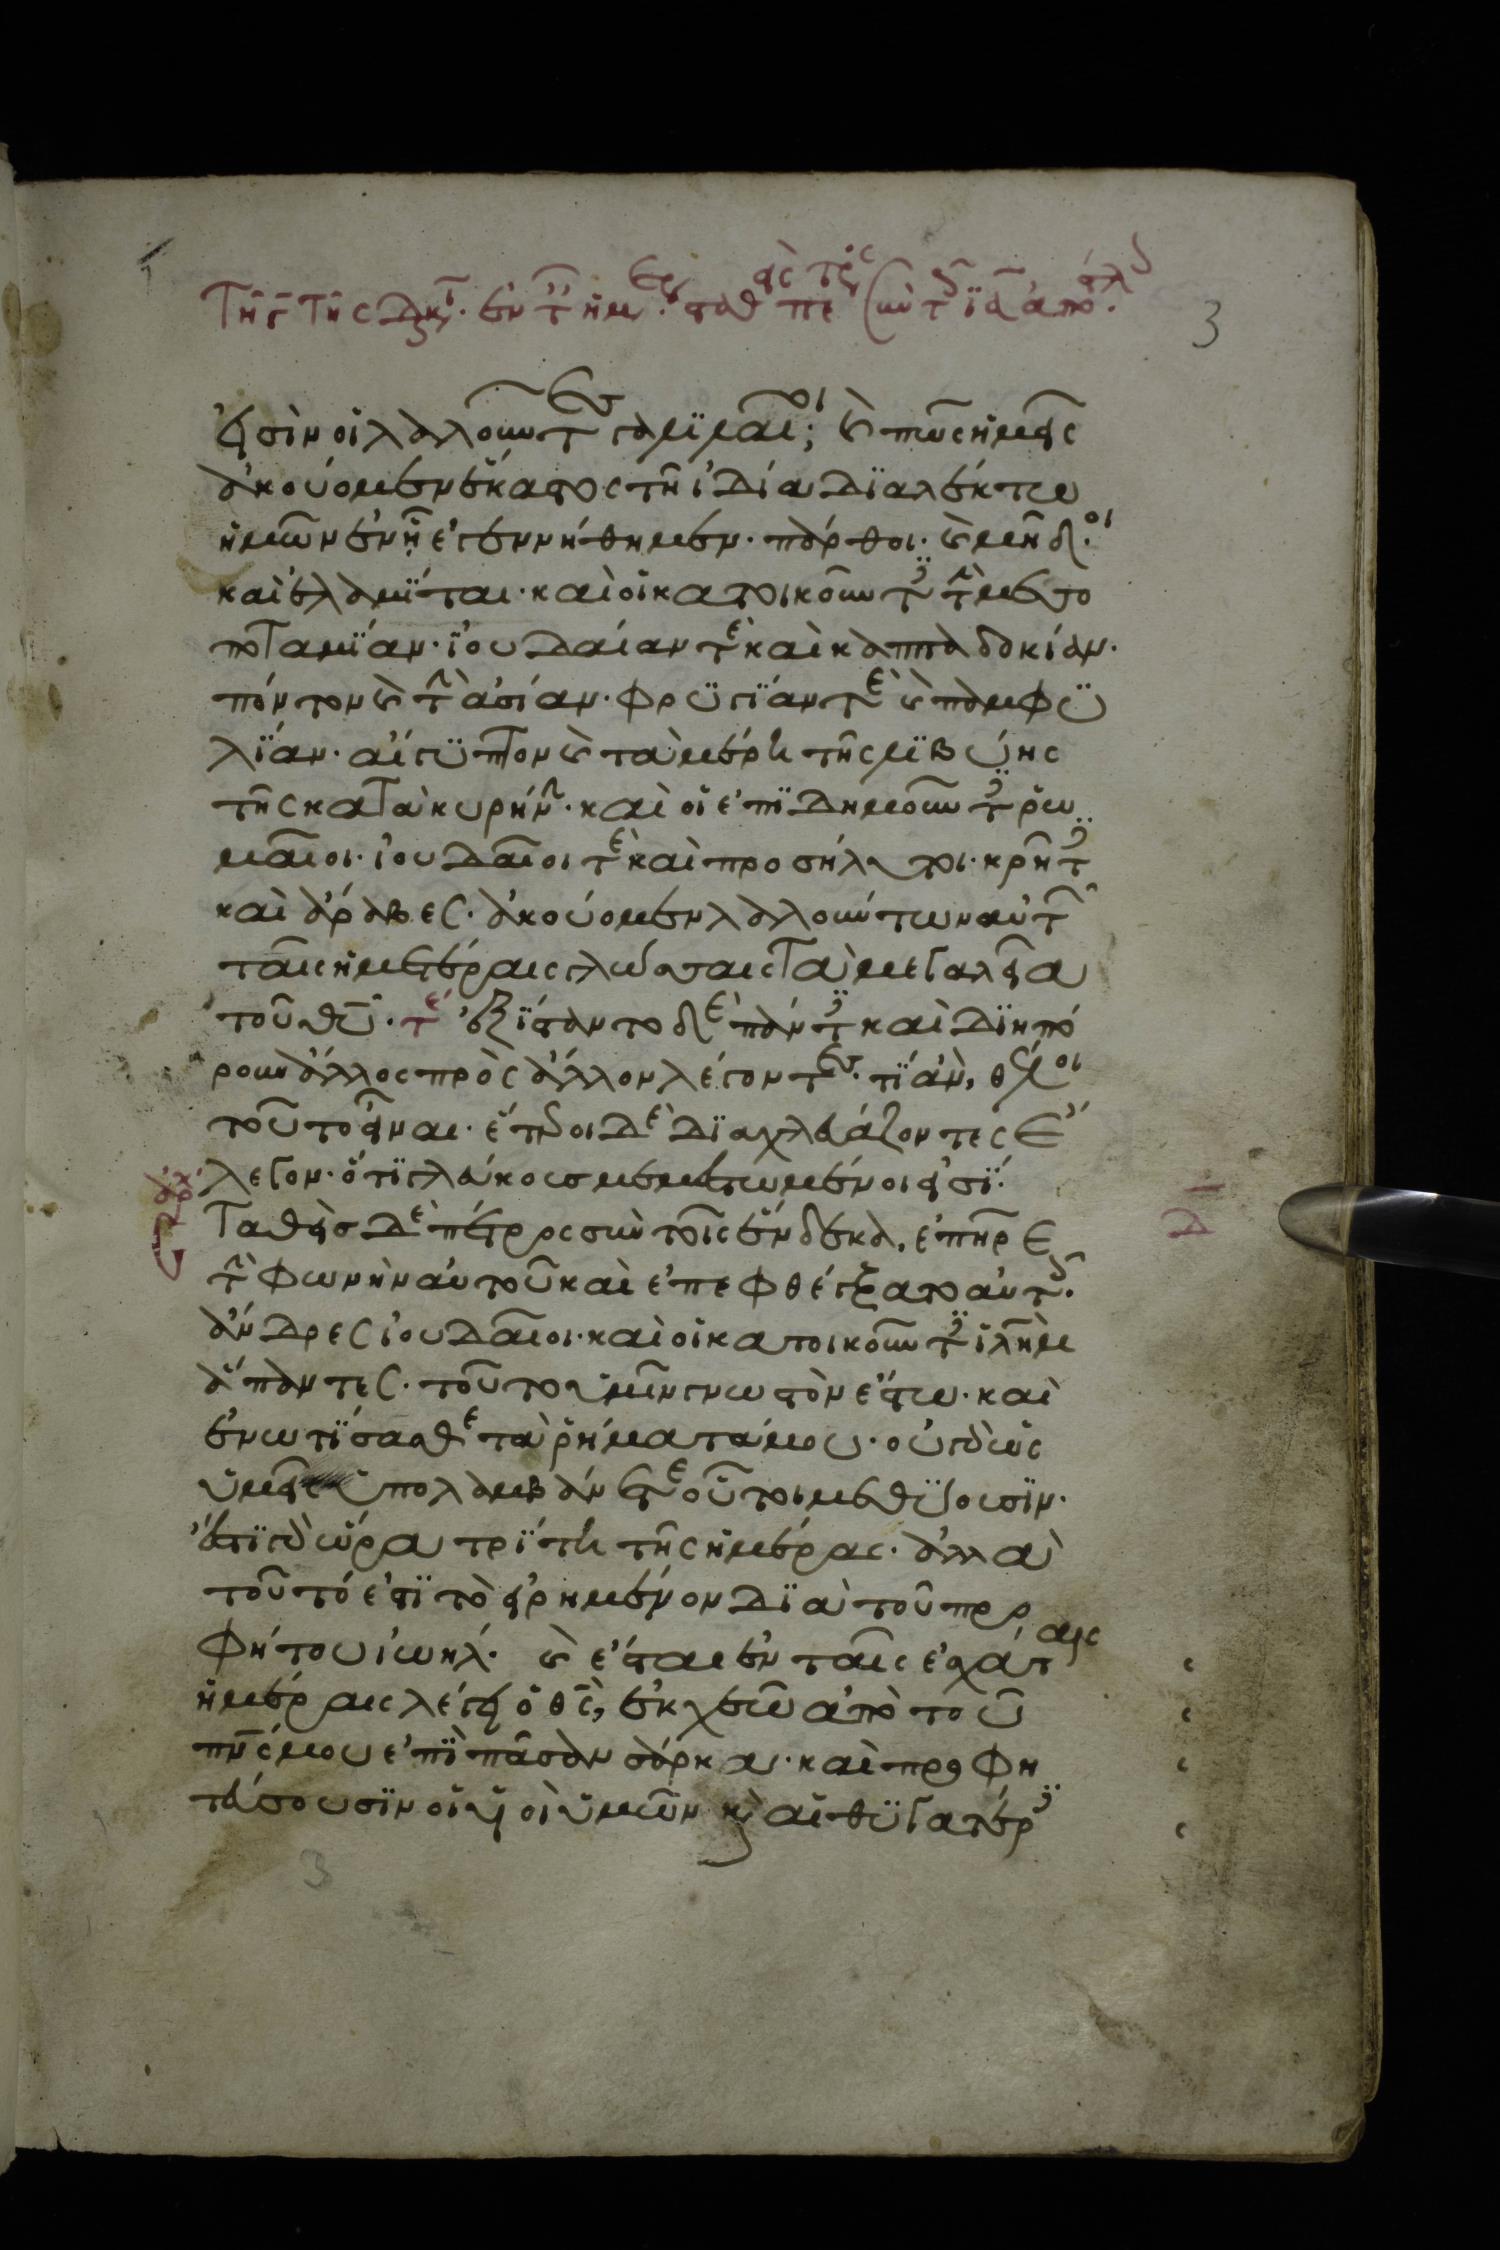 Τῇ γ τῆς διακ. ἐν τ ἡμ. σταθ πε
3
εἰσὶν οἱ λαλοῦντες γαλιλαῖοι; καὶ πῶς ἡμεῖς
ἀκούομεν ἕκαστος τῇ ἰδία διαλέκτω
ἡμῶν ἐν ᾗ ἐγεννήθημεν. πάρθοι. καὶ μῆδοι.
καὶ ἐλαμῖται. καὶ οἱ κατοικοῦντες τὴν μεσο
ποταμίαν. ἰουδαίαν τὲ καὶ καππαδοκίαν.
πόντον καὶ τὴν ἀσίαν. φρυγίαν τὲ καὶ παμφυ
λίαν. αἴγυπτον καὶ τὰ μέρη τῆς λιβύης
τῆς κατὰ κυρήνην. καὶ οἱ ἐπιδημοῦντες ῥω
μαῖοι. ἰουδαῖοι τὲ καὶ προσήλυτοι. κρῆτες
καὶ ἄραβες. ἀκούομεν λαλούντων αὐτῶν
ταῖς ἡμετέραις γλώσσαις τὰ μεγαλεῖα
τοῦ θυ. τέ ἐξίσταντο δὲ πάντες καὶ διηπό
ρουν ἄλλος πρὸς ἄλλον λέγοντες. τί ἂν, θέλοι
τοῦτο εἶναι. ἕτεροι δὲ διαχλευάζοντες ἔ
λεγον. ὅτι γλεύκους μεμεστωμένοι εἰσί.
ἀρχ
Σταθεὶς δὲ πέτρος σὺν τοῖς ἕνδεκα, ἐπῆρε
τὴν φωνὴν αὐτοῦ καὶ ἐπεφθέγξατο αὐτοῖς.
ἄνδρες ἰουδαῖοι. καὶ οἱ κατοικοῦντες ἰλημ
ἅπαντες. τοῦτο ὑμῖν γνωστὸν ἔστω. καὶ
ἐνωτίσασθε τὰ ῥήματα μου. οὐ γὰρ ὡς
ὑμεῖς ὑπολαμβάνετε οὗτοι μεθύουσιν.
ἔστι γὰρ ὥρα τρίτη τῆς ἡμέρας. ἀλλὰ
τοῦτό ἐστι τὸ εἰρημένον διὰ τοῦ προ
φήτου ἰωήλ. καὶ ἔσται ἐν ταῖς ἐσχάταις
ἡμέραις λέγει ὁ θς, ἐκχεῶ ἀπὸ τοῦ
πνς μου ἐπὶ πᾶσαν σάρκα. καὶ προφη
τεύσουσιν οἱ υἱοὶ ὑμῶν καὶ αἱ θυγατέρες
3